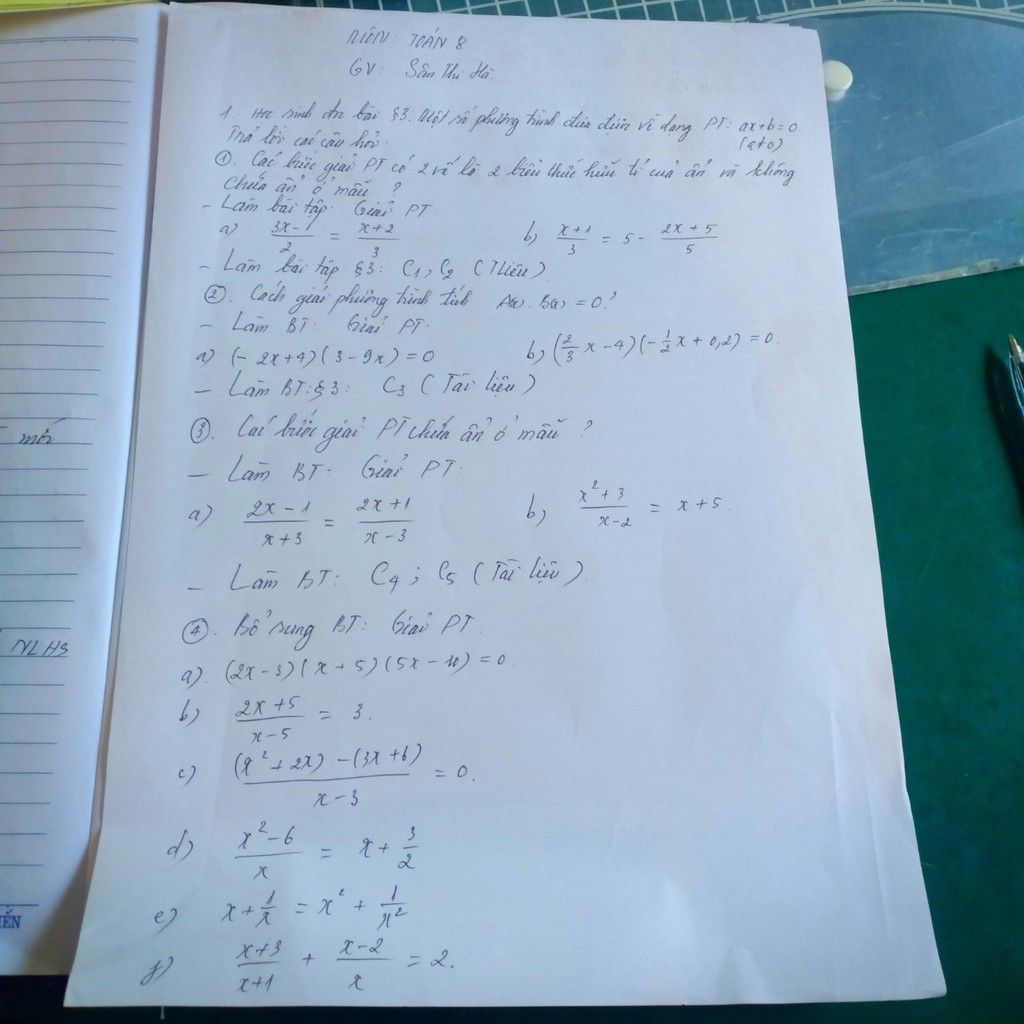 MÔN: TOÁN 8
GV: Sân Thị Hà
1. Học sinh đọc bài §3. Một số phương trình đưa được về dạng PT: ax+b=0
Trả lời các câu hỏi: (a≠0)
①. Các bước giải PT có 2 vế là 2 biểu thức hữu tỉ của ẩn và không
chứa ẩn ở mẫu ?
- Làm bài tập: Giải PT
a) (3x-1)/2 = (x+2)/3 b) (x+1)/3 = 5 - (2x+5)/5
- Làm bài tập §3: C1, C2 (TLiệu)
②. Cách giải phương trình tích A(x).B(x) = 0?
- Làm BT: Giải PT:
a) (-2x+4)(3-9x) = 0 b) (2/3 x-4)(-1/2 x+0,2) = 0.
- Làm BT: §3: C3 (Tài liệu)
③. Các bước giải PT chứa ẩn ở mẫu ?
- Làm BT: Giải PT:
a) (2x-1)/(x+3) = (2x+1)/(x-3) b) (x²+3)/(x-2) = x+5.
- Làm BT: C4; C5 (Tài liệu)
④. Bổ sung BT: Giải PT.
a). (2x-3)(x+5)(5x-10) = 0.
b) (2x+5)/(x-5) = 3.
c) ((x²+2x)-(3x+6))/(x-3) = 0.
d) (x²-6)/x = x + 3/2
e) x + 1/x = x² + 1/x²
f) (x+3)/(x+1) + (x-2)/x = 2.
mới
NLHS